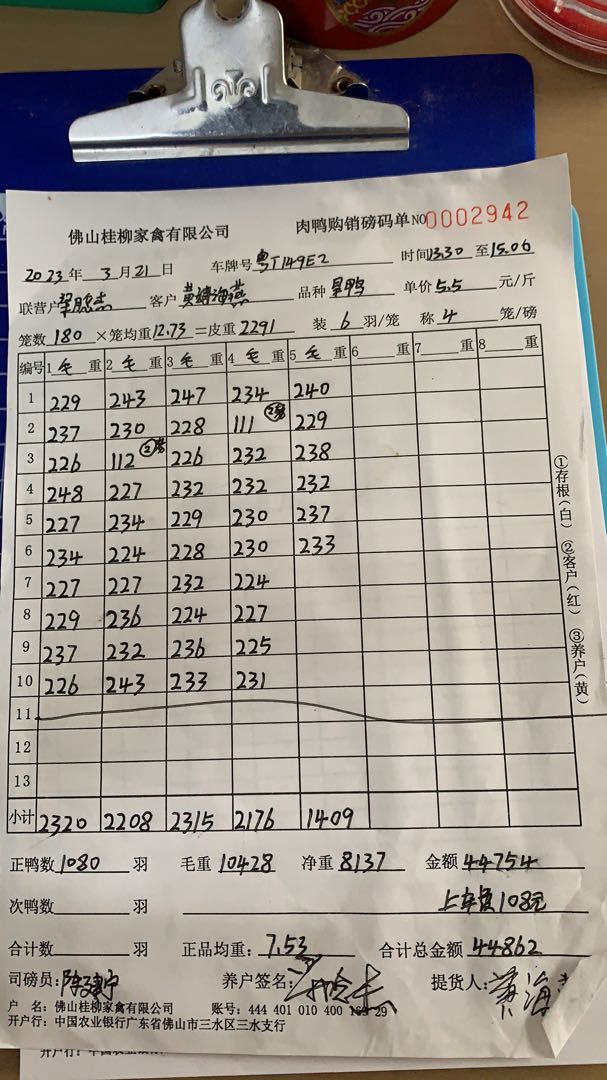 佛山桂柳家禽有限公司 肉鸭购销磅码单 NO 0002942
2023年3月21日 车牌号粤T149E2 时间13.30至15.06
联营户 客户 品种 单价5.5元/斤
笼数180×笼均重12.73=皮重2291 装6羽/笼 称4笼/磅
编号 1毛重 2毛重 3毛重 4毛重 5毛重 6 重 7 重 8 重
1 229 243 247 234 240
2 237 230 228 111 229
3 226 112 226 232 238
4 248 227 232 232 232
5 227 234 229 230 237
6 234 224 228 230 233
7 227 227 232 224
8 229 236 224 227
9 237 232 236 225
10 226 243 233 231
11
12
13
小计 2320 2208 2315 2176 1409
①存根(白) ②客户(红) ③养户(黄)
正鸭数1080羽 毛重10428 净重8137 金额44754
次鸭数 羽 上车费108元
合计数 羽 正品均重:7.53 合计总金额44862
司磅员: 养户签名: 提货人:
户 名: 佛山桂柳家禽有限公司 账号: 444 401 010 400 29
开户行: 中国农业银行广东省佛山市三水区三水支行
开户行: